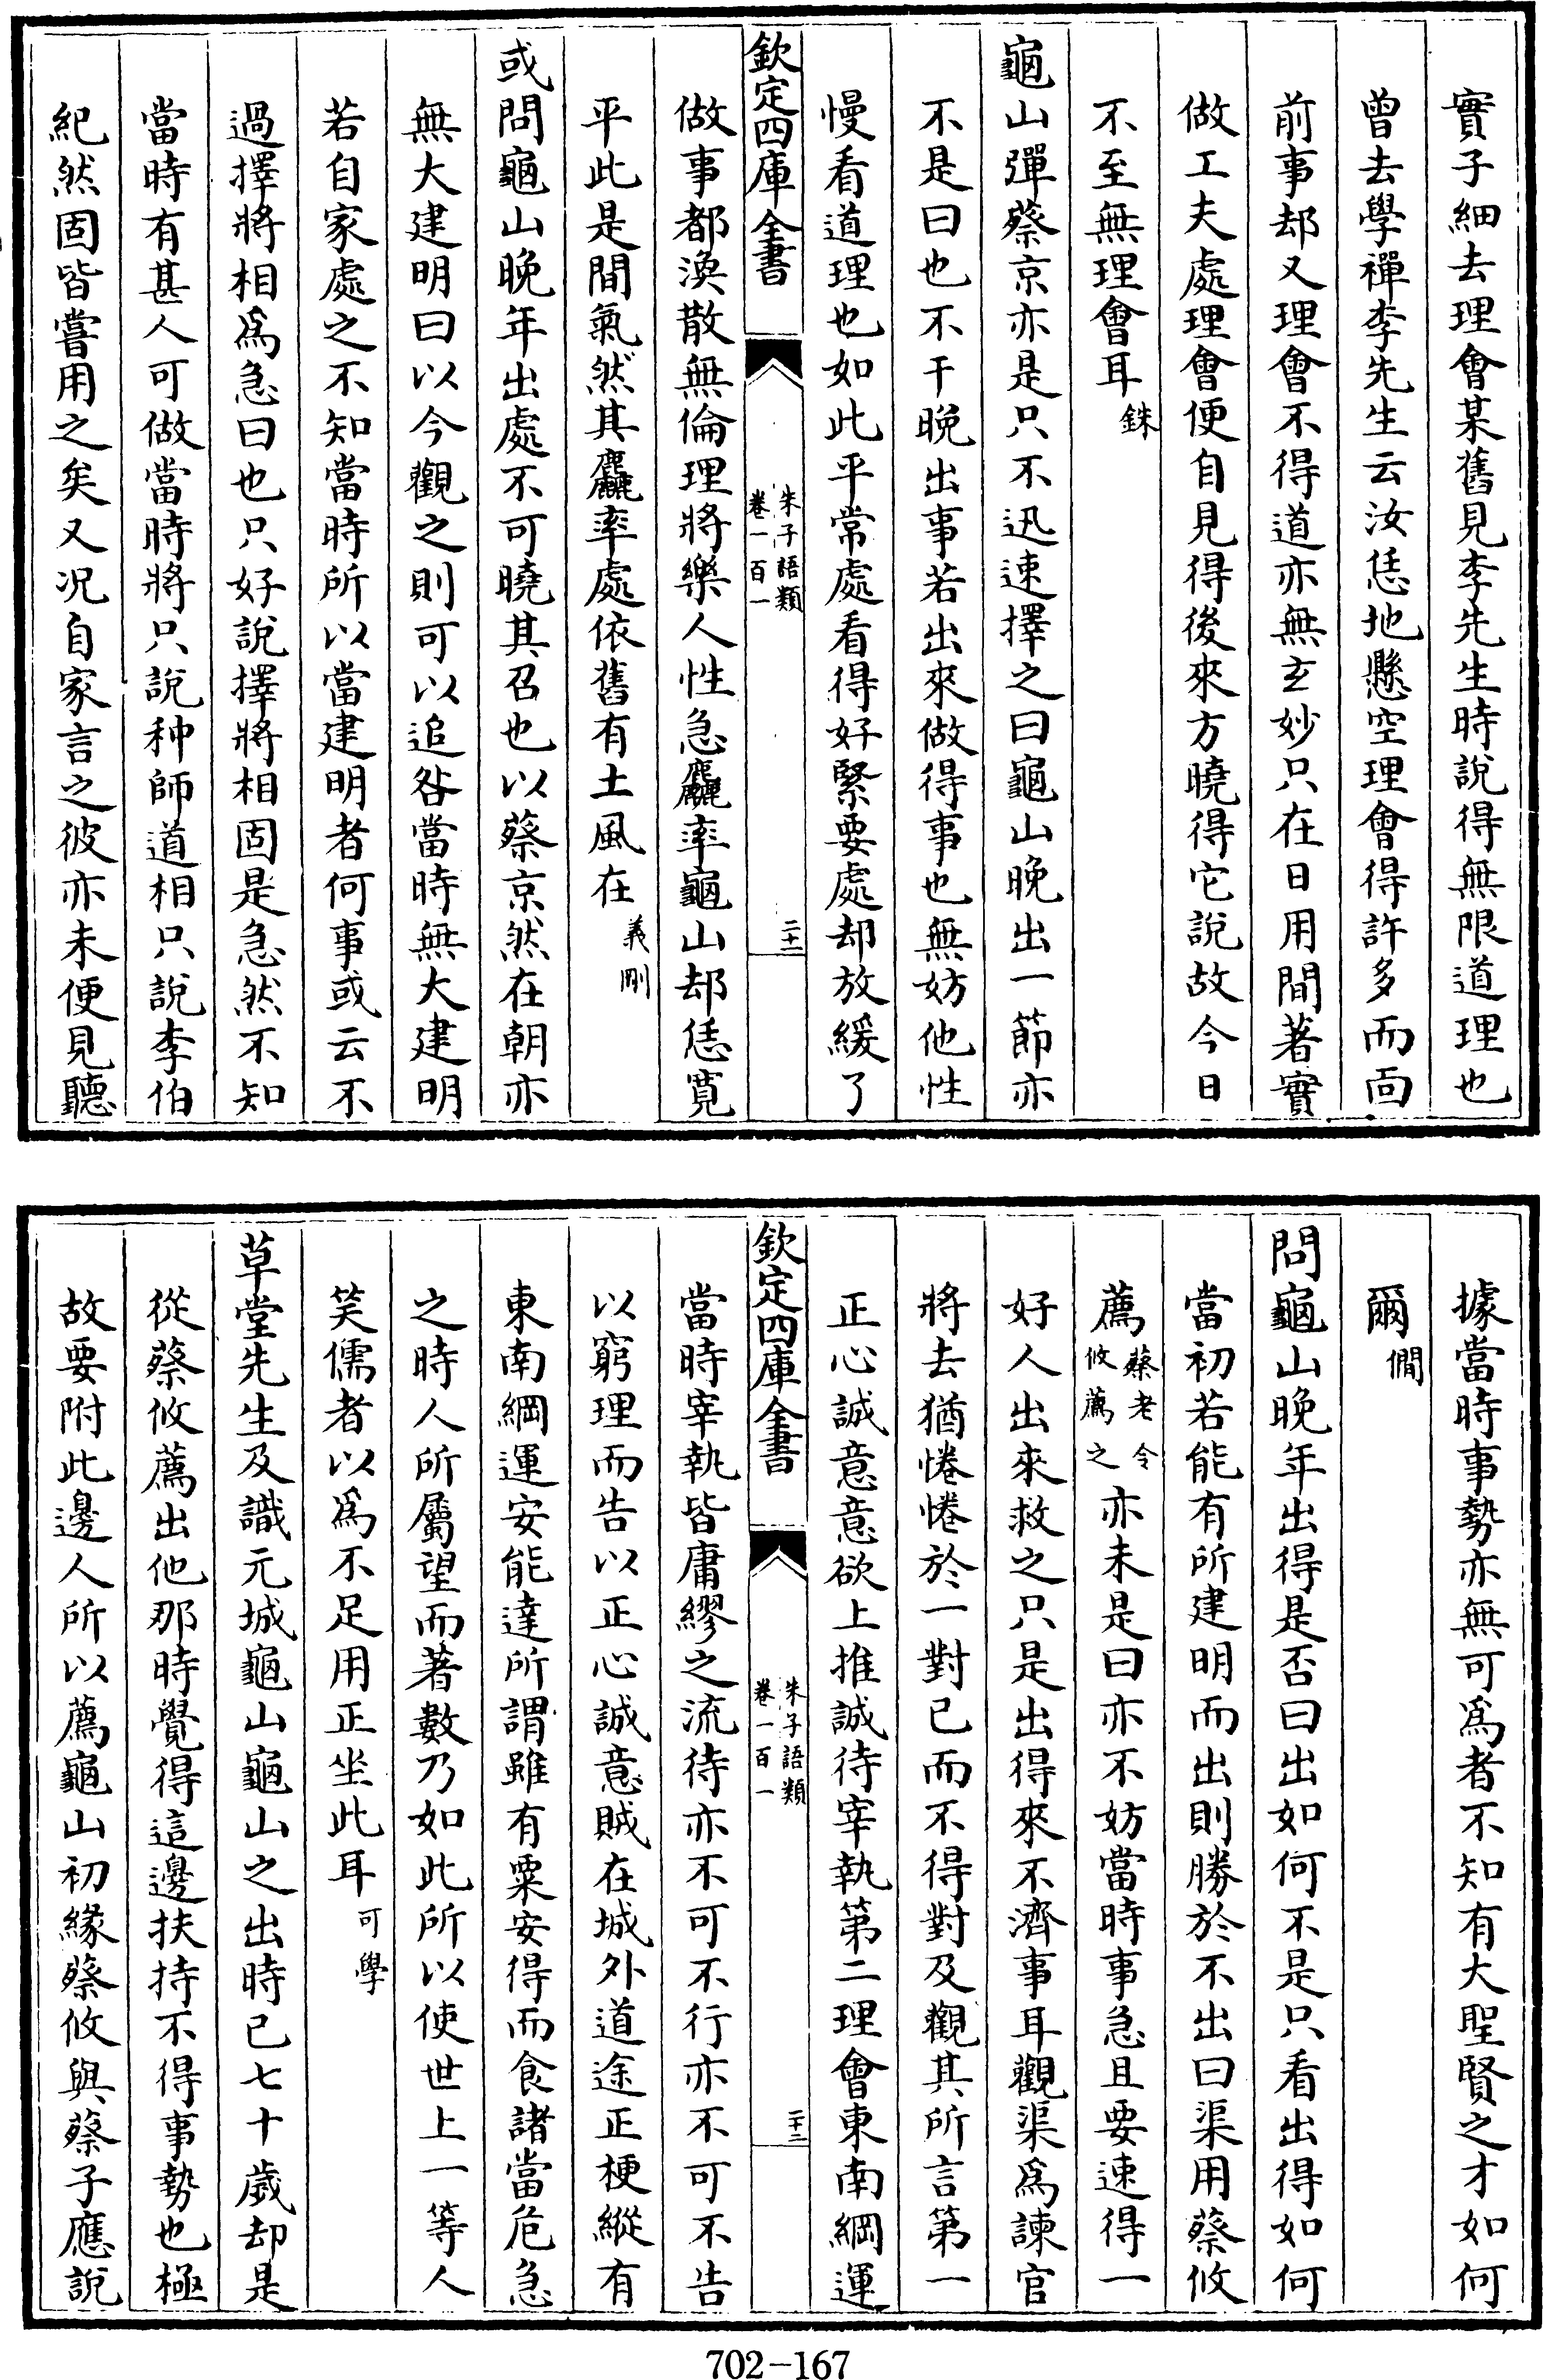 實子細去理會某舊見李先生時說得無限道理也
曾去學禪李先生云汝恁地懸空理會得許多而面
前事却又理會不得道亦無玄妙只在日用間著實
做工夫處理會便自見得後來方曉得它說故今日
不至無理會耳銖
龜山彈蔡京亦是只不迅速擇之曰龜山晚出一節亦
不是曰也不干晚出事若出來做得事也無妨他性
慢看道理也如此平常處看得好緊要處却放緩了
欽定四庫全書
朱子語類
卷一百一
二十二
做事都渙散無倫理將樂人性急麤率龜山却恁寬
平此是間氣然其麤率處依舊有土風在義剛
或問龜山晚年出處不可曉其召也以蔡京然在朝亦
無大建明曰以今觀之則可以追咎當時無大建明
若自家處之不知當時所以當建明者何事或云不
過擇將相爲急曰也只好說擇將相固是急然不知
當時有甚人可做當時將只說种師道相只說李伯
紀然固皆嘗用之矣又况自家言之彼亦未便見聽
據當時事勢亦無可爲者不知有大聖賢之才如何
爾僩
問龜山晚年出得是否曰出如何不是只看出得如何
當初若能有所建明而出則勝於不出曰渠用蔡攸
薦蔡老令攸薦之亦未是曰亦不妨當時事急且要速得一
好人出來救之只是出得來不濟事耳觀渠爲諫官
將去猶惓惓於一對已而不得對及觀其所言第一
正心誠意意欲上推誠待宰執第二理會東南綱運
欽定四庫全書
朱子語類
卷一百一
二十三
當時宰執皆庸繆之流待亦不可不行亦不可不告
以窮理而告以正心誠意賊在城外道途正梗縱有
東南綱運安能達所謂雖有粟安得而食諸當危急
之時人所屬望而著數乃如此所以使世上一等人
笑儒者以爲不足用正坐此耳可學
草堂先生及識元城龜山龜山之出時已七十歲却是
從蔡攸薦出他那時覺得這邊扶持不得事勢也極
故要附此邊人所以薦龜山初緣蔡攸與蔡子應說
702-167